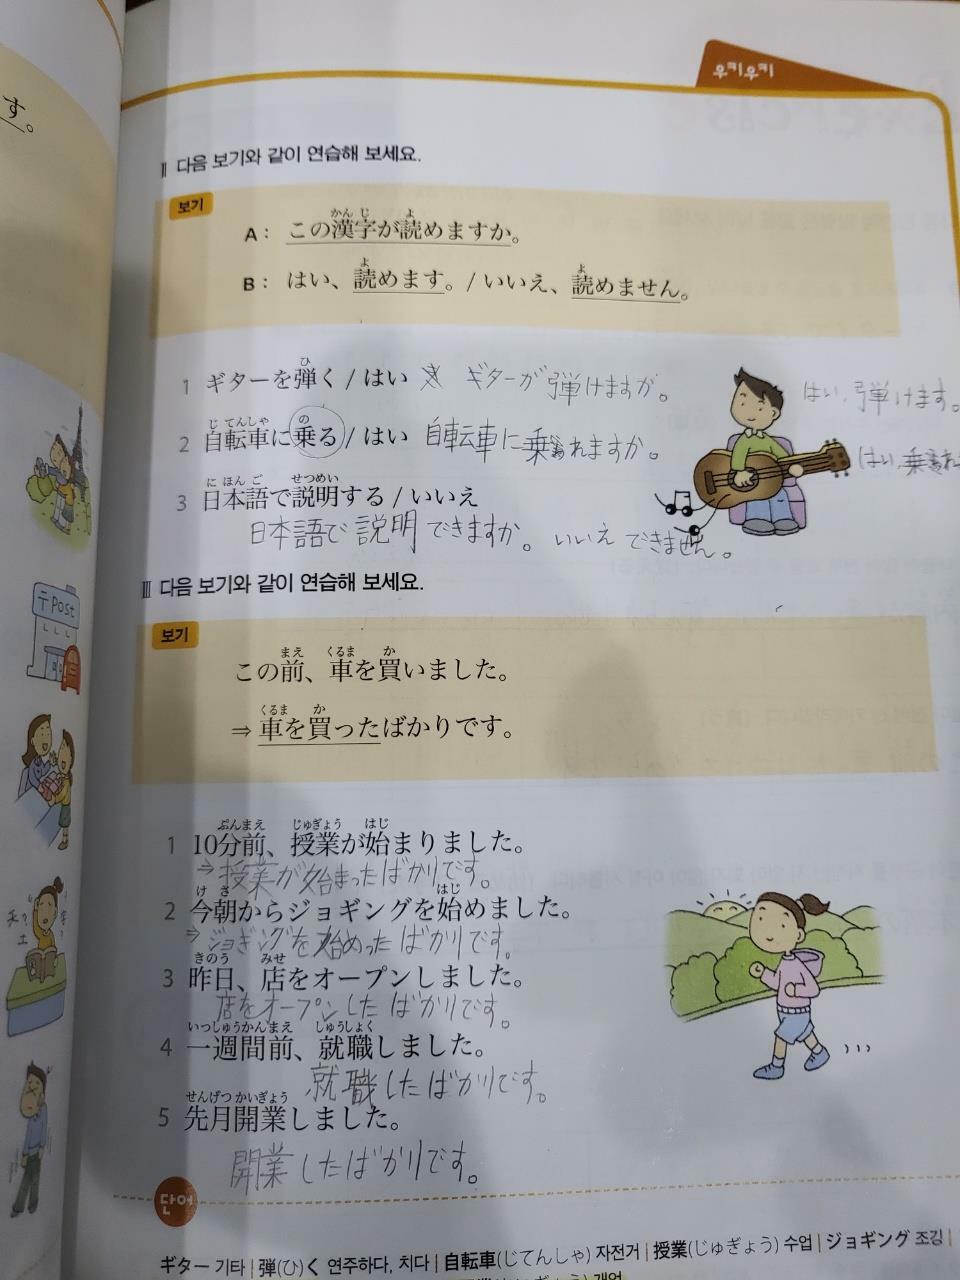 す。
우키우키
Ⅱ 다음 보기와 같이 연습해 보세요.
보기
A: この漢字が読めますか。
B: はい、読めます。/ いいえ、読めません。
1 ギターを弾く / はい ギターが弾けますか。 はい、弾けます。
2 自転車に乗る / はい 自転車に乗れますか。 はい、乗れ
3 日本語で説明する / いいえ
日本語で説明できますか。いいえ できません。
Ⅲ 다음 보기와 같이 연습해 보세요.
보기
この前、車を買いました。
⇒ 車を買ったばかりです。
〒Post
1 10分前、授業が始まりました。
→ 授業が始まったばかりです。
2 今朝からジョギングを始めました。
⇒ ジョギングを始めたばかりです。
3 昨日、店をオープンしました。
店をオープンしたばかりです。
4 一週間前、就職しました。
就職したばかりです。
5 先月開業しました。
開業したばかりです。
단어
ギター 기타 | 弾(ひ)く 연주하다, 치다 | 自転車(じてんしゃ) 자전거 | 授業(じゅぎょう) 수업 | ジョギング 조깅 |
(じゅぎょう) 개업